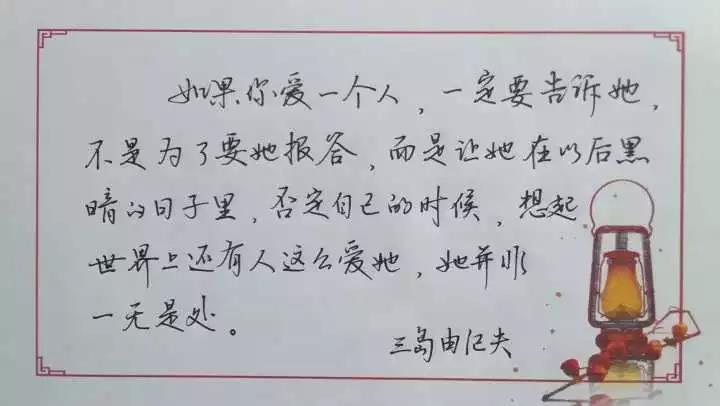 如果你爱一个人，一定要告诉她，
不是为了要她报答，而是让她在以后黑
暗的日子里，否定自己的时候，想起
世界上还有人这么爱她，她并非
一无是处。
三岛由纪夫